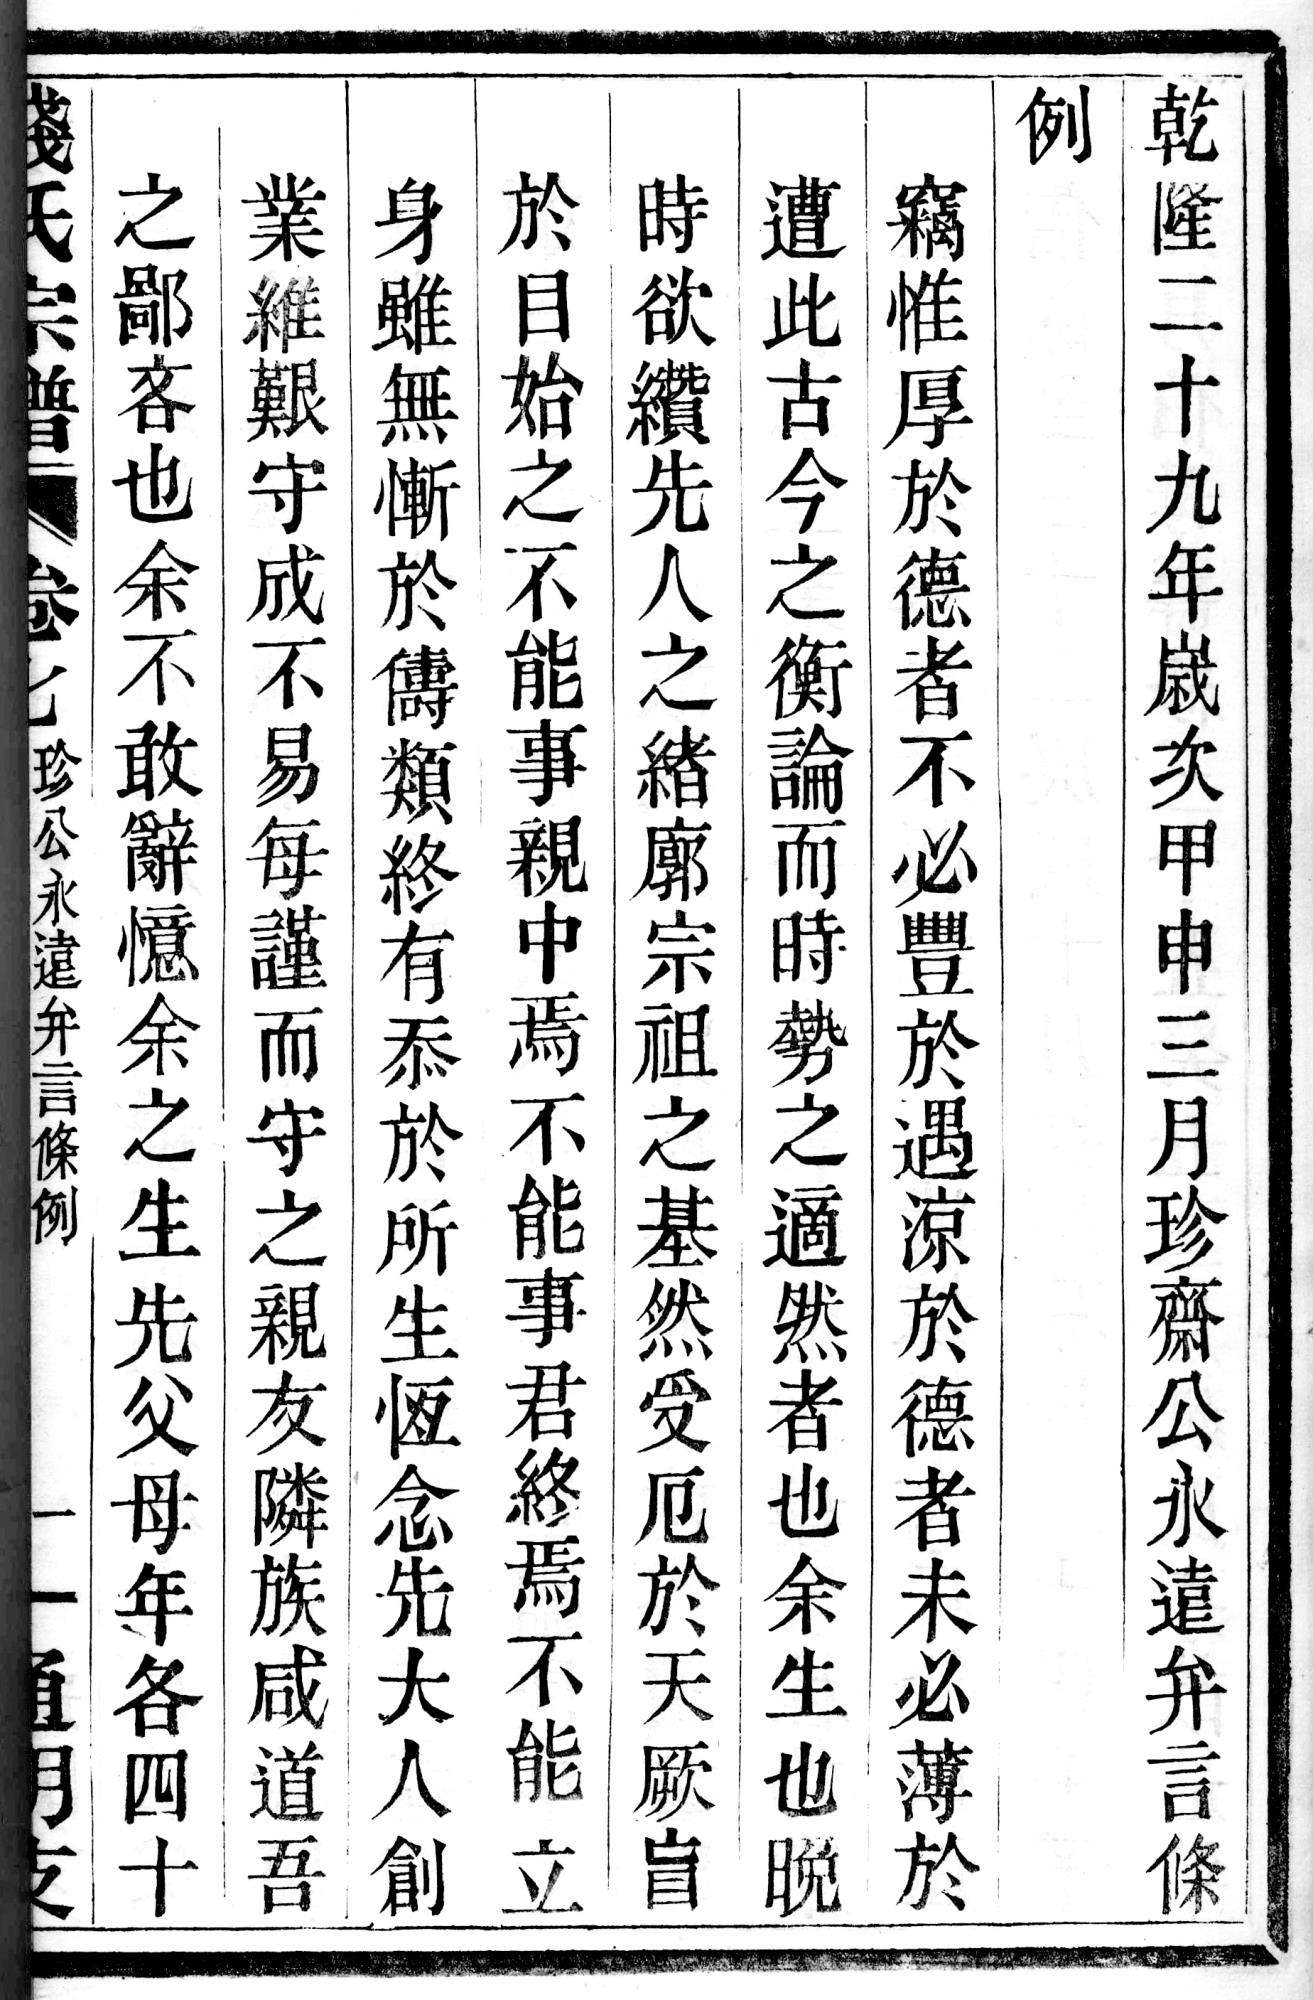 乾隆二十九年嵗次甲申三月珍齋公永遠弁言條
例
竊惟厚於德者不必豐於遇涼於德者未必薄於
遭此古今之衡論而時勢之適然者也余生也晚
時欲纘先人之緒廓宗祖之基然受厄於天厥盲
於目始之不能事親中焉不能事君終焉不能立
身雖無慚於儔類終有忝於所生恆念先大人創
業維艱守成不易每謹而守之親友隣族咸道吾
之鄙吝也余不敢辭憶余之生先父母年各四十
錢氏宗譜 卷七 珍公永遠弁言條例 一 一通明支